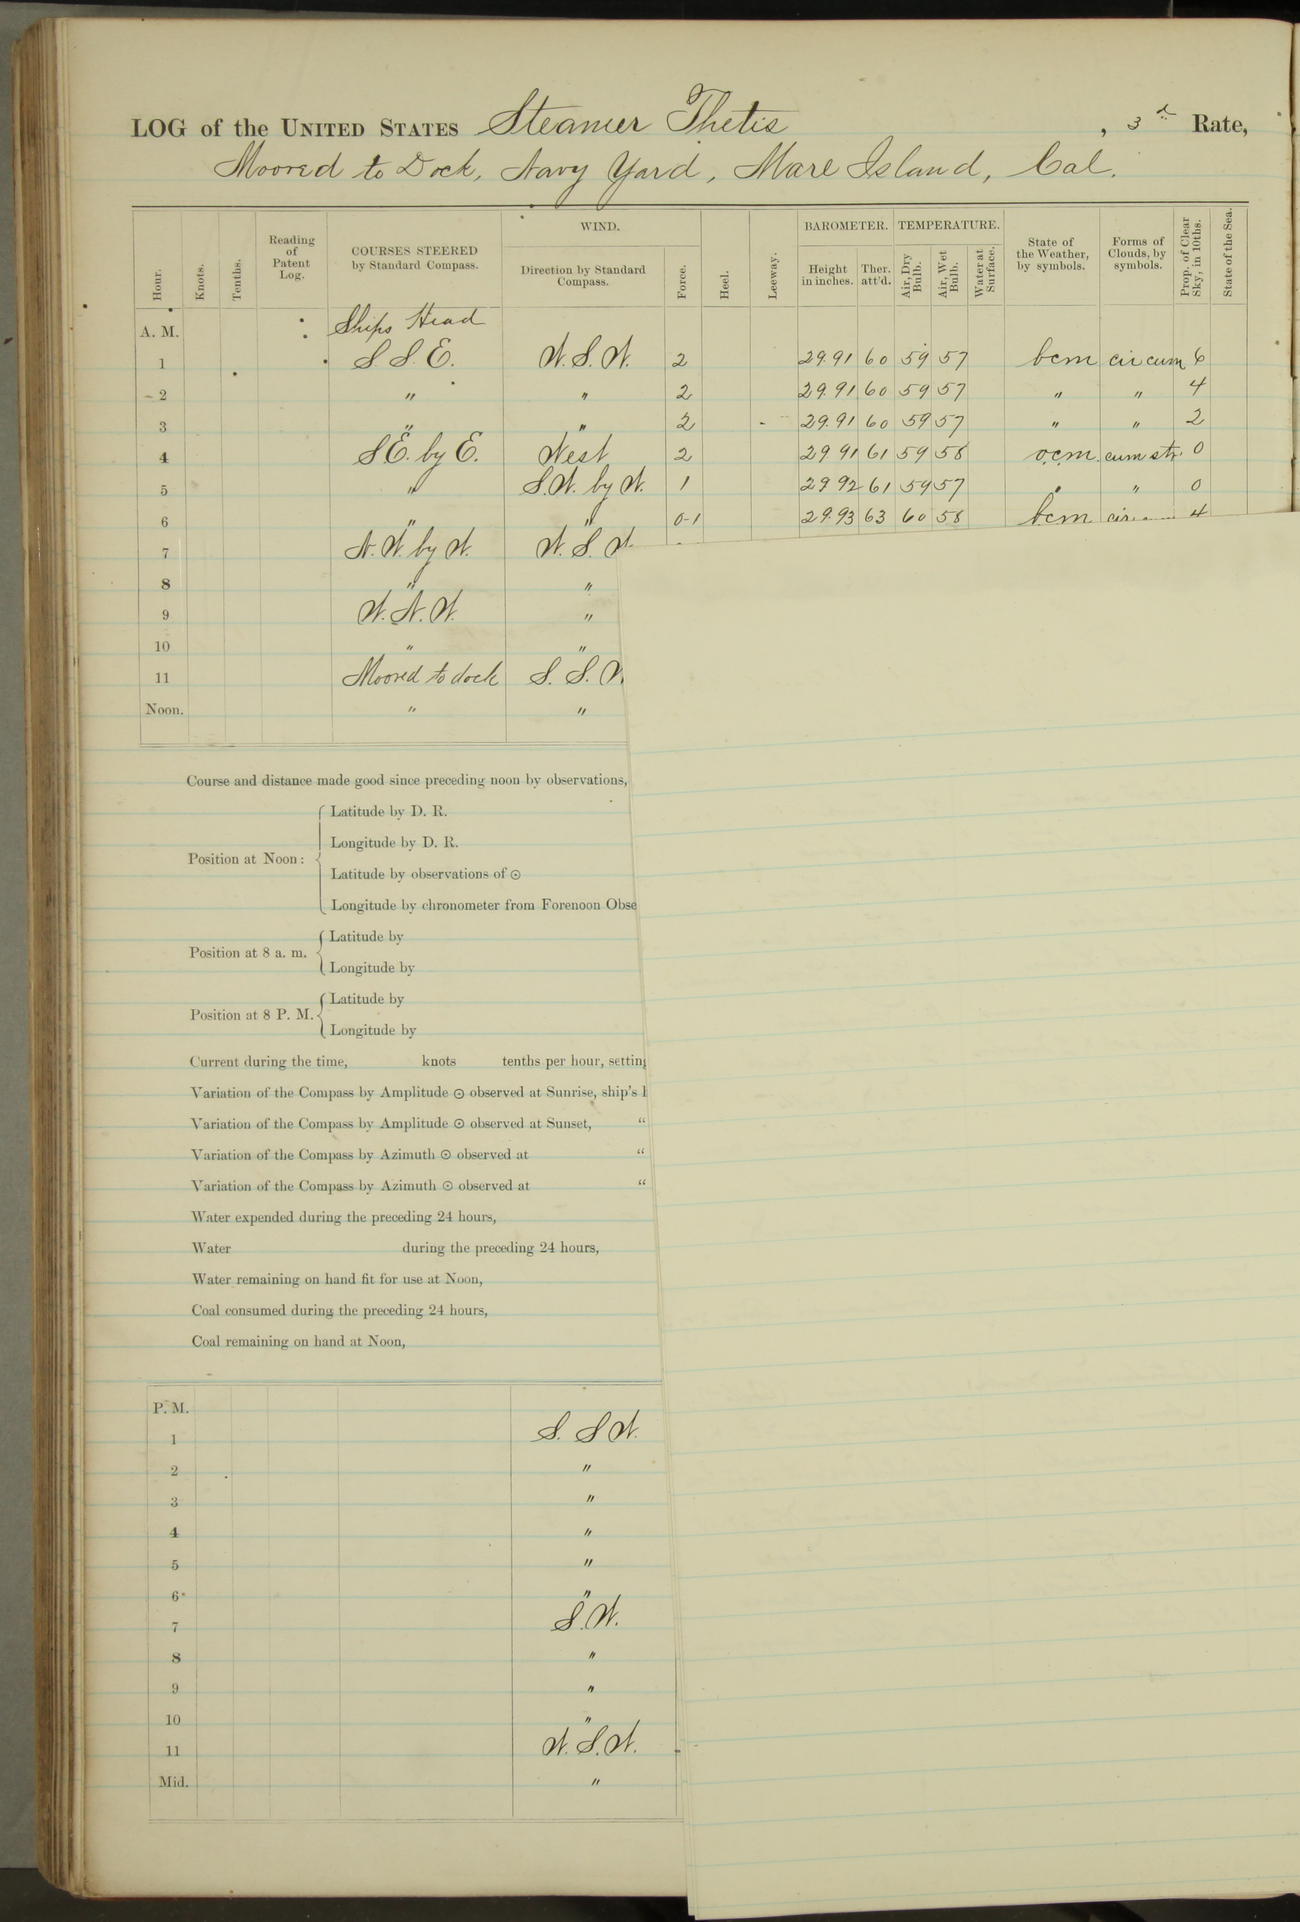 LOG of the UNITED STATES Steamer Thetis, 3d Rate,
Moored to Dock, Navy Yard, Mare Island, Cal.
Hour. Knots. Tenths. Reading of Patent Log. COURSES STEERED by Standard Compass. WIND. Direction by Standard Compass. Force. Heel. Leeway. BAROMETER. Height in inches. Ther. att'd. TEMPERATURE. Air, Dry Bulb. Air, Wet Bulb. Water at Surface. State of the Weather, by symbols. Forms of Clouds, by symbols. Prop. of Clear Sky, in 10ths. State of the Sea.
A. M. Ships Head
1 S. S. E. W. S. W. 2 29.91 60 59 57 bcm cir cum 6
2 " " 2 29.91 60 59 57 " " 4
3 " " 2 29.91 60 59 57 " " 2
4 S.E. by E. West 2 29 91 61 59 58 o.c.m. cum str. 0
5 " S.W. by W. 1 29 92 61 59 57 " " 0
6 " " 0-1 29.93 63 60 58 bcm cir 4
7 N. W. by W. W. S. W.
8 " "
9 W. N. W. "
10 " "
11 Moored to dock S. S. W.
Noon. " "
Course and distance made good since preceding noon by observations,
Position at Noon:
Latitude by D. R.
Longitude by D. R.
Latitude by observations of ⊙
Longitude by chronometer from Forenoon Obse
Position at 8 a. m.
Latitude by
Longitude by
Position at 8 P. M.
Latitude by
Longitude by
Current during the time, knots tenths per hour, setting
Variation of the Compass by Amplitude ⊙ observed at Sunrise, ship's
Variation of the Compass by Amplitude ⊙ observed at Sunset, "
Variation of the Compass by Azimuth ⊙ observed at "
Variation of the Compass by Azimuth ⊙ observed at "
Water expended during the preceding 24 hours,
Water during the preceding 24 hours,
Water remaining on hand fit for use at Noon,
Coal consumed during the preceding 24 hours,
Coal remaining on hand at Noon,
P. M.
1 S. S W.
2 "
3 "
4 "
5 "
6 "
7 S. W.
8 "
9 "
10 "
11 W. S. W.
Mid. "